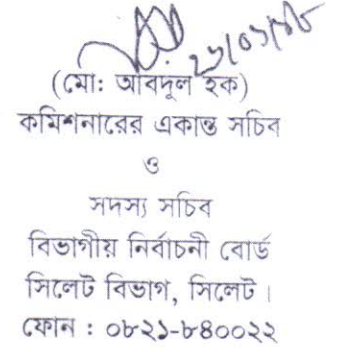 (মো: আবদুল হক)
কমিশনারের একান্ত সচিব
ও
সদস্য সচিব
বিভাগীয় নির্বাচনী বোর্ড
সিলেট বিভাগ, সিলেট।
ফোন : ০৮২১-৮৪০০২২